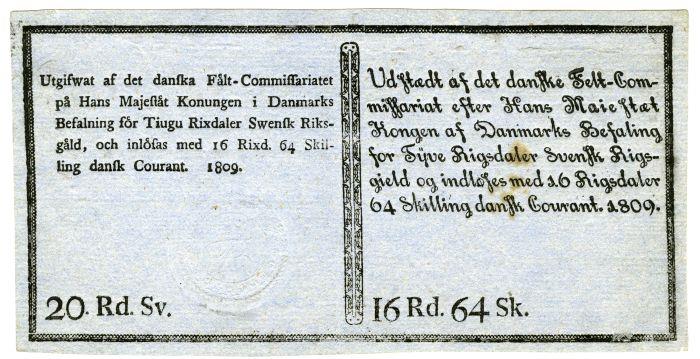 Utgifwat af det danſka Fålt-Commiſſariatet
på Hans Majeſtåt Konungen i Danmarks
Befalning fór Tiugu Rixdaler Swenſk Riks-
gåld, och inlóſas med 16 Rixd. 64 Skil-
ling danſk Courant. 1809.
20. Rd. Sv.
Udſtædt af det danſke Felt-Com-
miſſariat efter Hans Maieſtæt
Kongen af Danmarks Befaling
for Tÿve Rigsdaler Svenſk Rigs-
gield og indløſes med 16 Rigsdaler
64 Skilling danſk Courant. 1809.
16 Rd. 64 Sk.